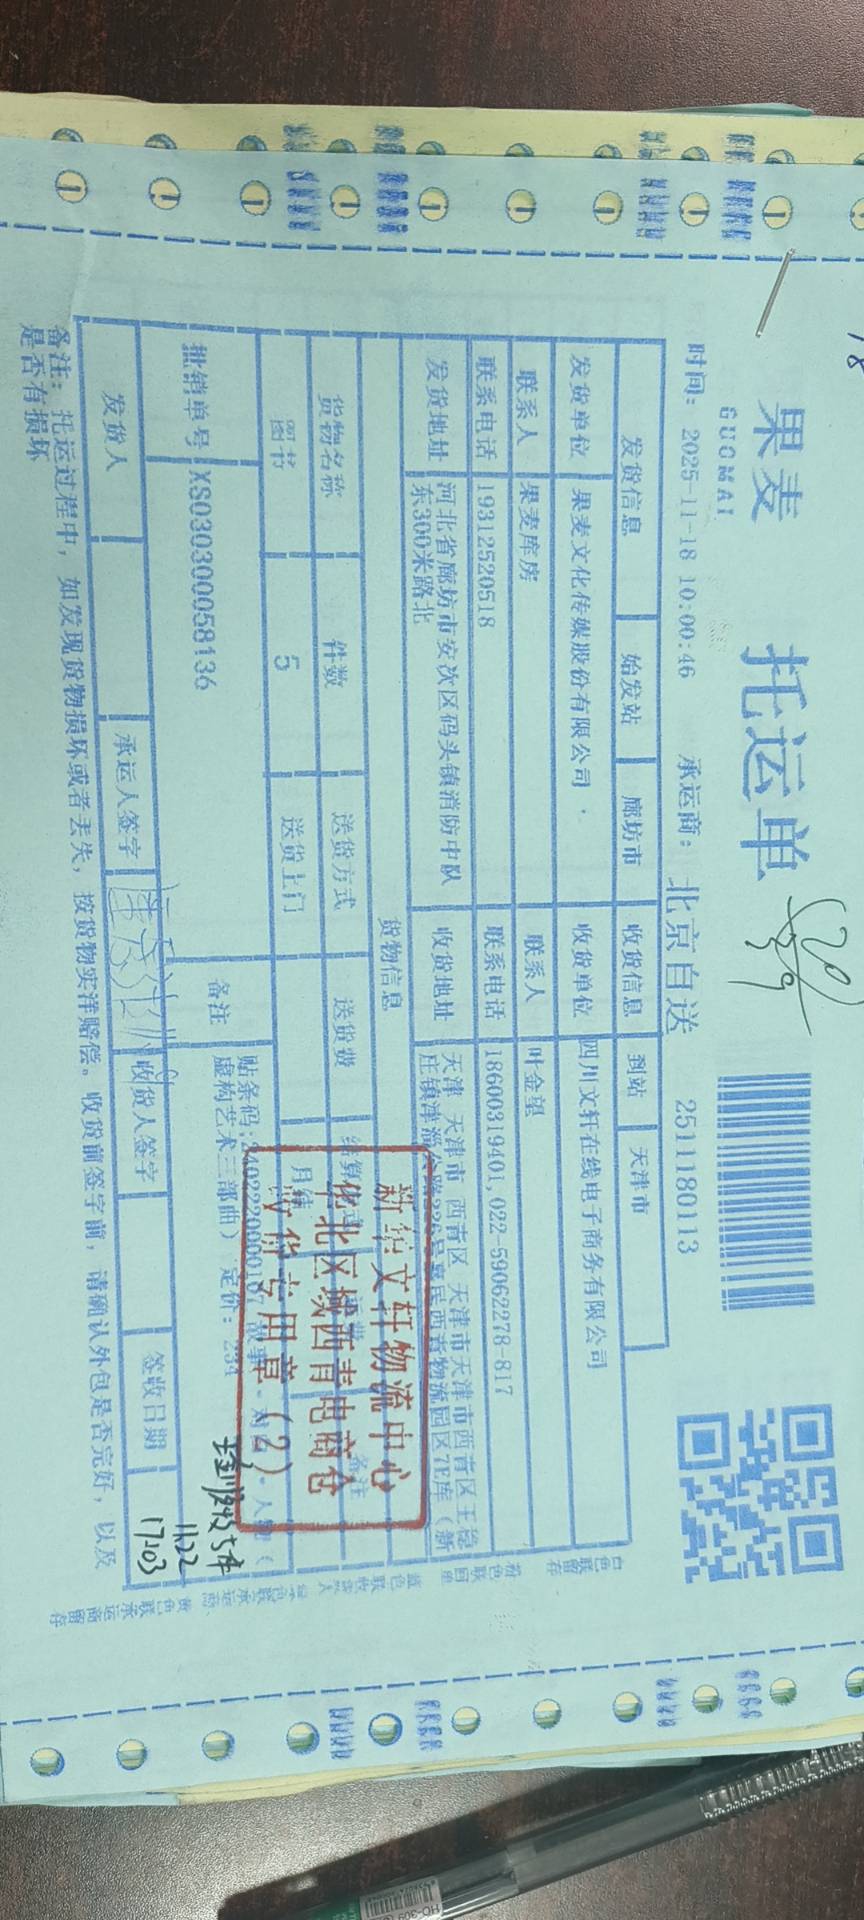 果麦
GUOMAI
托运单
时间: 2025-11-18 10:00:46 承运商: 北京自送 2511180113
发货信息 始发站 廊坊市 收货信息 到站 天津市
发货单位 果麦文化传媒股份有限公司 收货单位 四川文轩在线电子商务有限公司
联系人 果麦库房 联系人 叶金望
联系电话 19312520518 联系电话 18600319401,022-59062278-817
发货地址 河北省廊坊市安次区码头镇消防中队东300米路北 收货地址 天津 天津市 西青区 天津市天津市西青区王
货物信息
货物名称 件数 送货方式 送货费 备注
图书 5 送货上门 月结
批销单号 XS030300058136 备注 贴条码:
虚构艺术三部曲) 定价: 234
新华文轩物流中心
华北区域西青电商仓
收货专用章(2)
发货人 承运人签字 收货人签字 签收日期
11.22
17:03
备注: 托运过程中, 如发现货物损坏或者丢失, 按货物实洋赔偿。收货前签字前, 请确认外包是否完好, 以及
是否有损坏